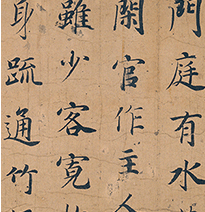 門庭有水
閑官作主人
雖少客寬
身疏通竹